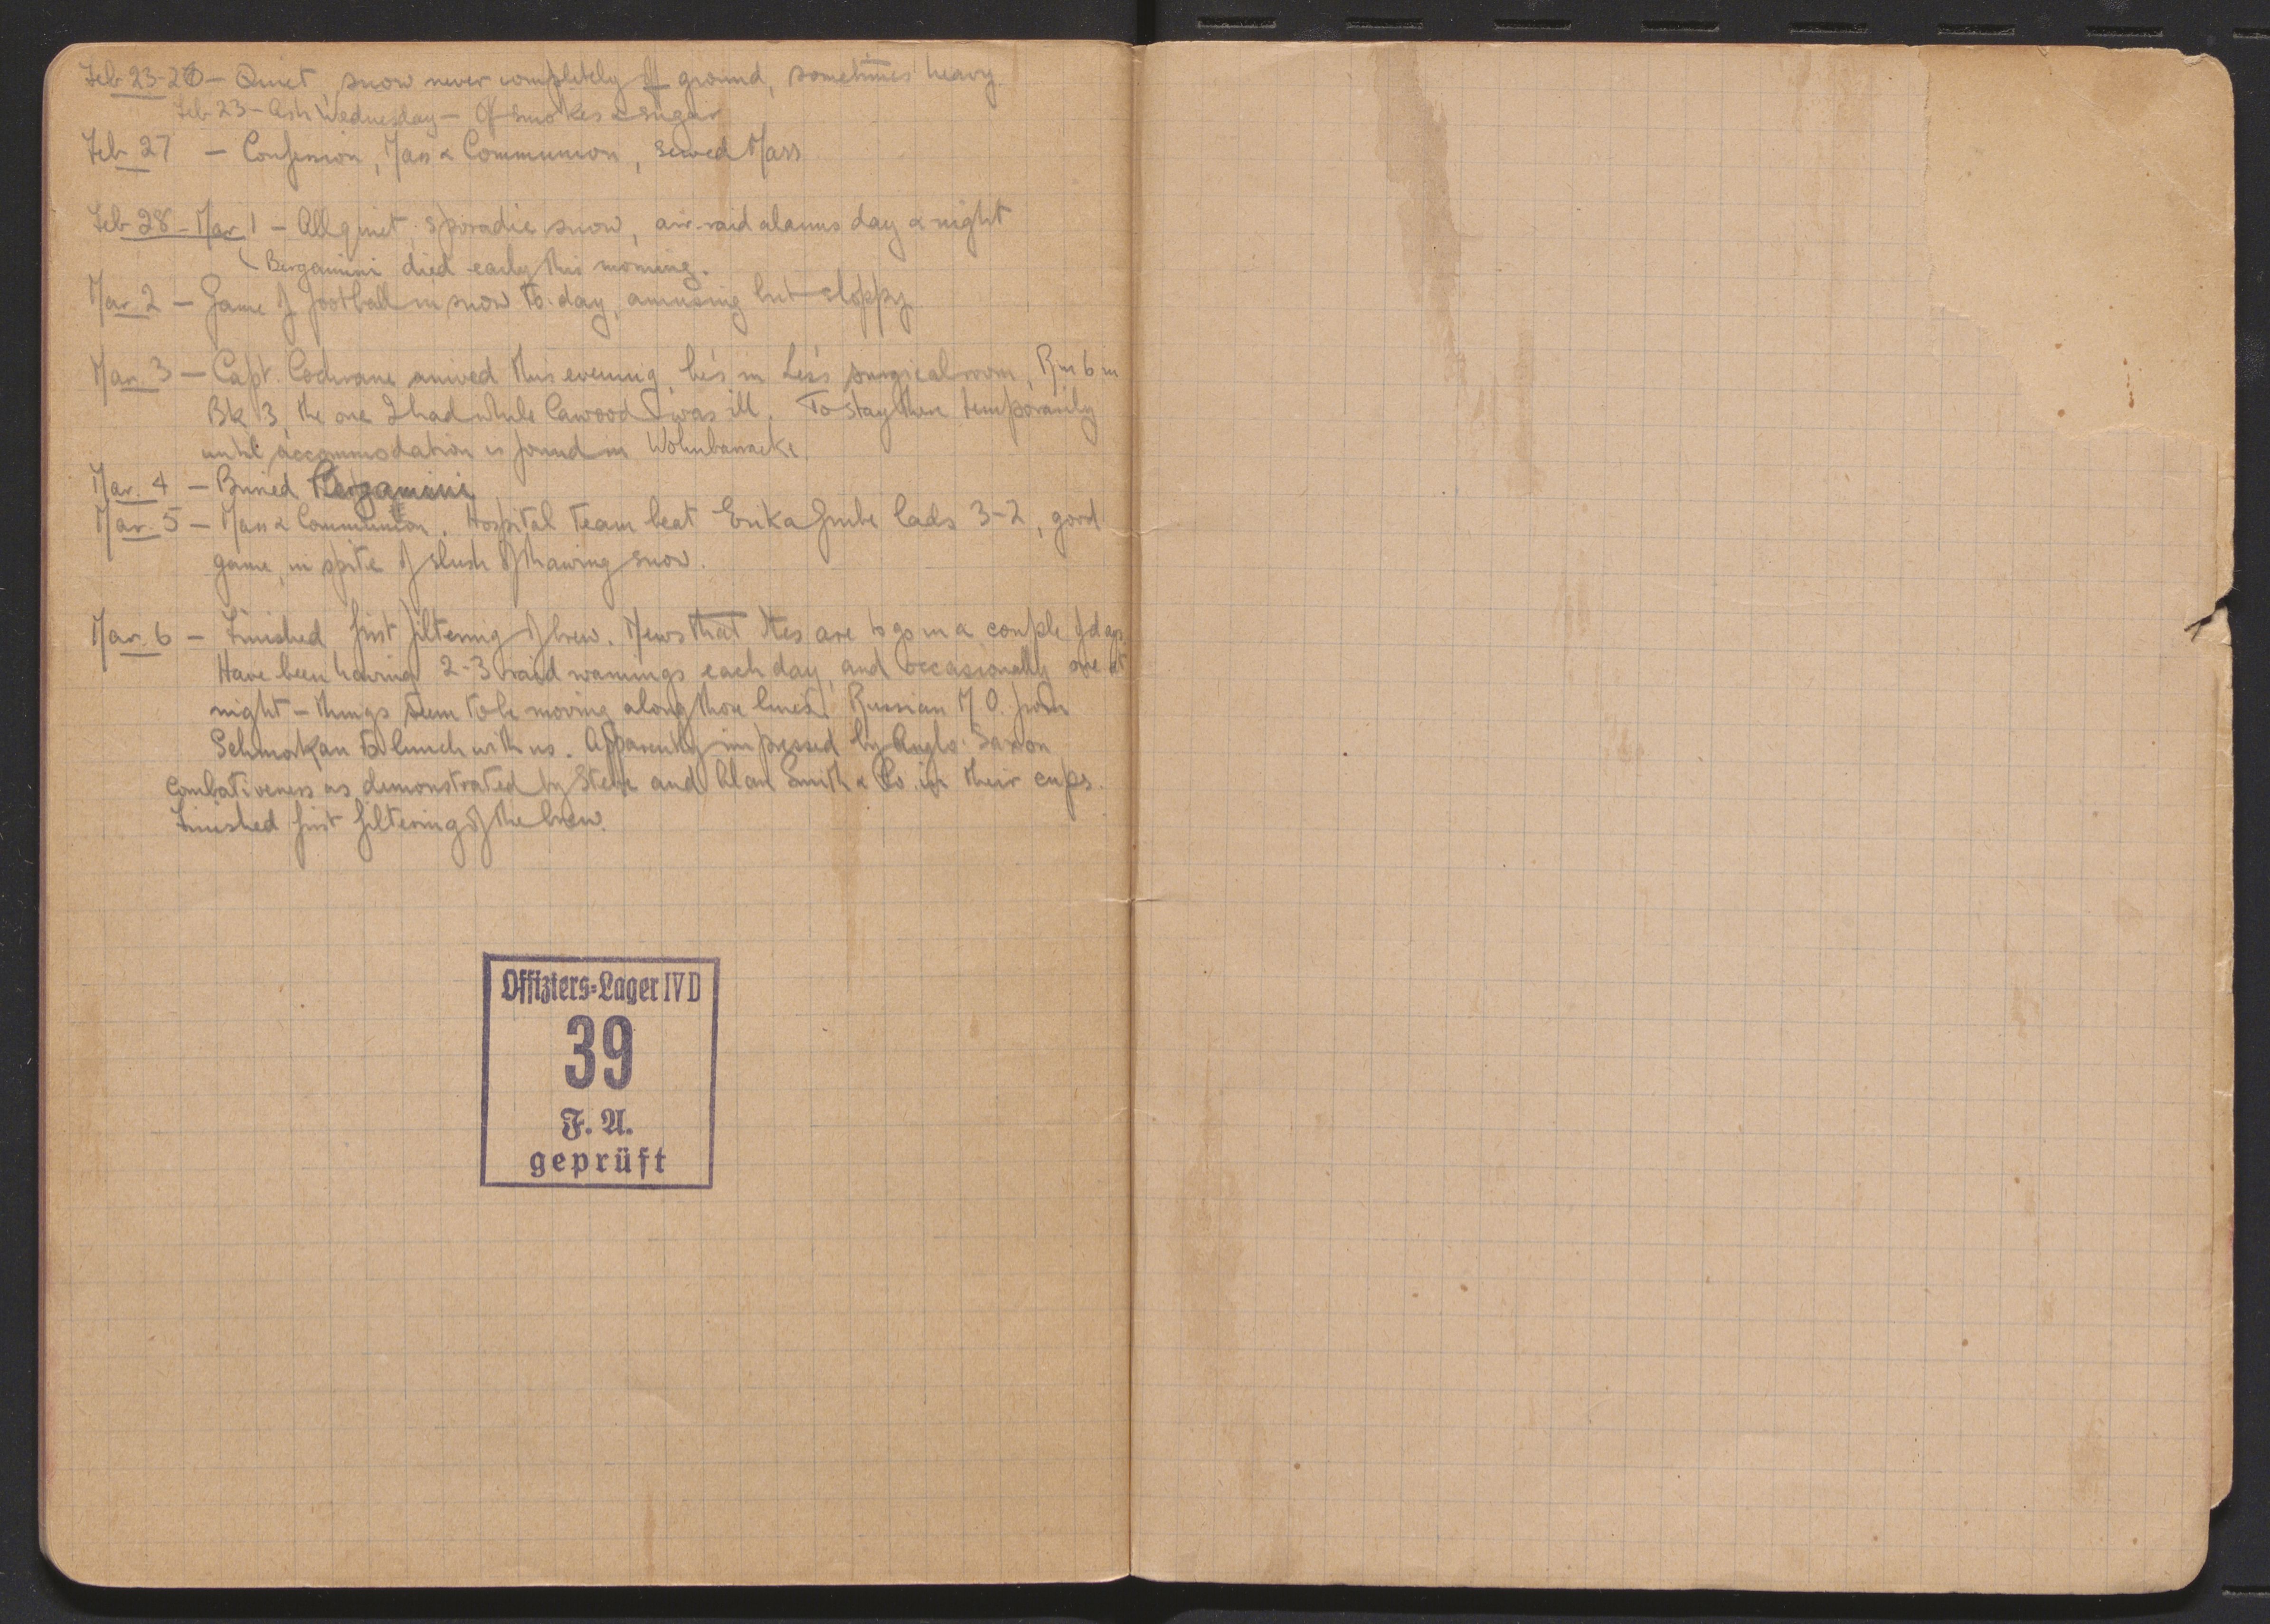 Feb 23-26 — Quiet, snow never completely off ground, sometimes heavy.
Feb 23 — Ash Wednesday — Off smokes & sugar
Feb 27 — Confession, Mass & Communion, served Mass
Feb 28 - Mar 1 — All quiet, sporadic snow, air-raid alarms day & night
Bergamini died early this morning.
Mar. 2 — Game of football in snow to-day, amusing but sloppy.
Mar. 3 — Capt. Cochrane arrived this evening, he's in Les's surgical room, Rm 6 in
Bk 13, the one I had while Cawood was ill. To stay there temporarily
until accommodation is found in Wohnbaracke.
Mar. 4 — Buried Bergamini
Mar. 5 — Mass & Communion. Hospital team beat Erika Grube lads 3-2, good
game, in spite of slush of thawing snow.
Mar. 6 — Finished first filtering of brew. News that Ites are to go in a couple of days.
Have been having 2-3 raid warnings each day, and occasionally one at
night — things seem to be moving along those lines. Russian M.O. from
to lunch with us. Apparently impressed by Anglo-Saxon
combativeness as demonstrated by Steve and Alan Smith & Co. in their cups.
Finished first filtering of the brew.
Offiziers-Lager IV D
39
F. A.
geprüft